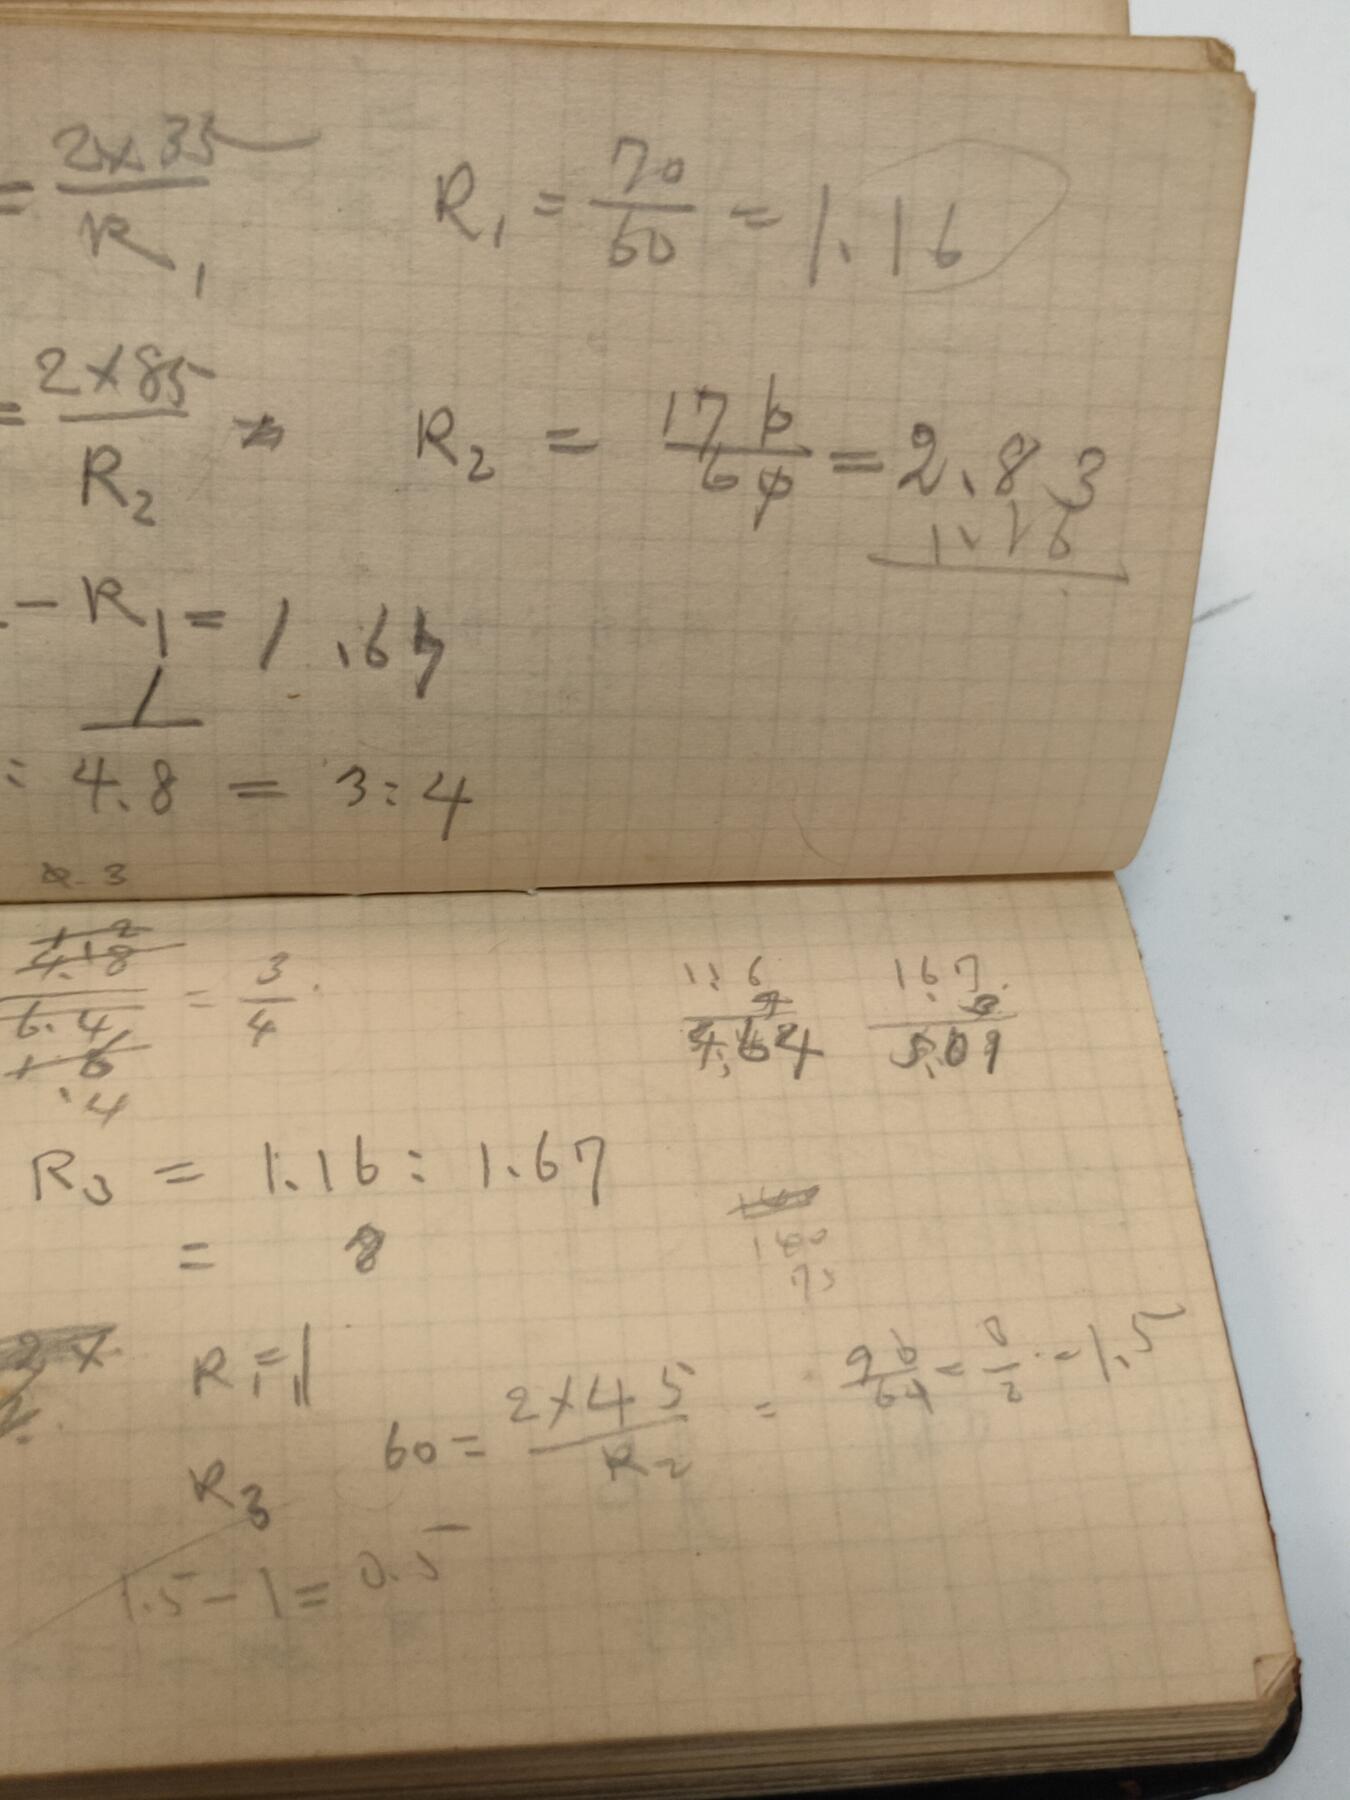 = 2x35 / R1    R1 = 70/60 = 1.16
= 2x85 / R2    R2 = 170/60 = 2.83
1.16
- R1 = 1.67
1
: 4.8 = 3:4
.3
4.18 / 6.4 = 3/4
1.6
.4
1.16    1.67
4.64    5.01
R3 = 1.16 : 1.67
= 8
75
2x    R1 = 1
60 = 2x45 / R2 = 90/60 = 3/2 = 1.5
R3
1.5 - 1 = 0.5